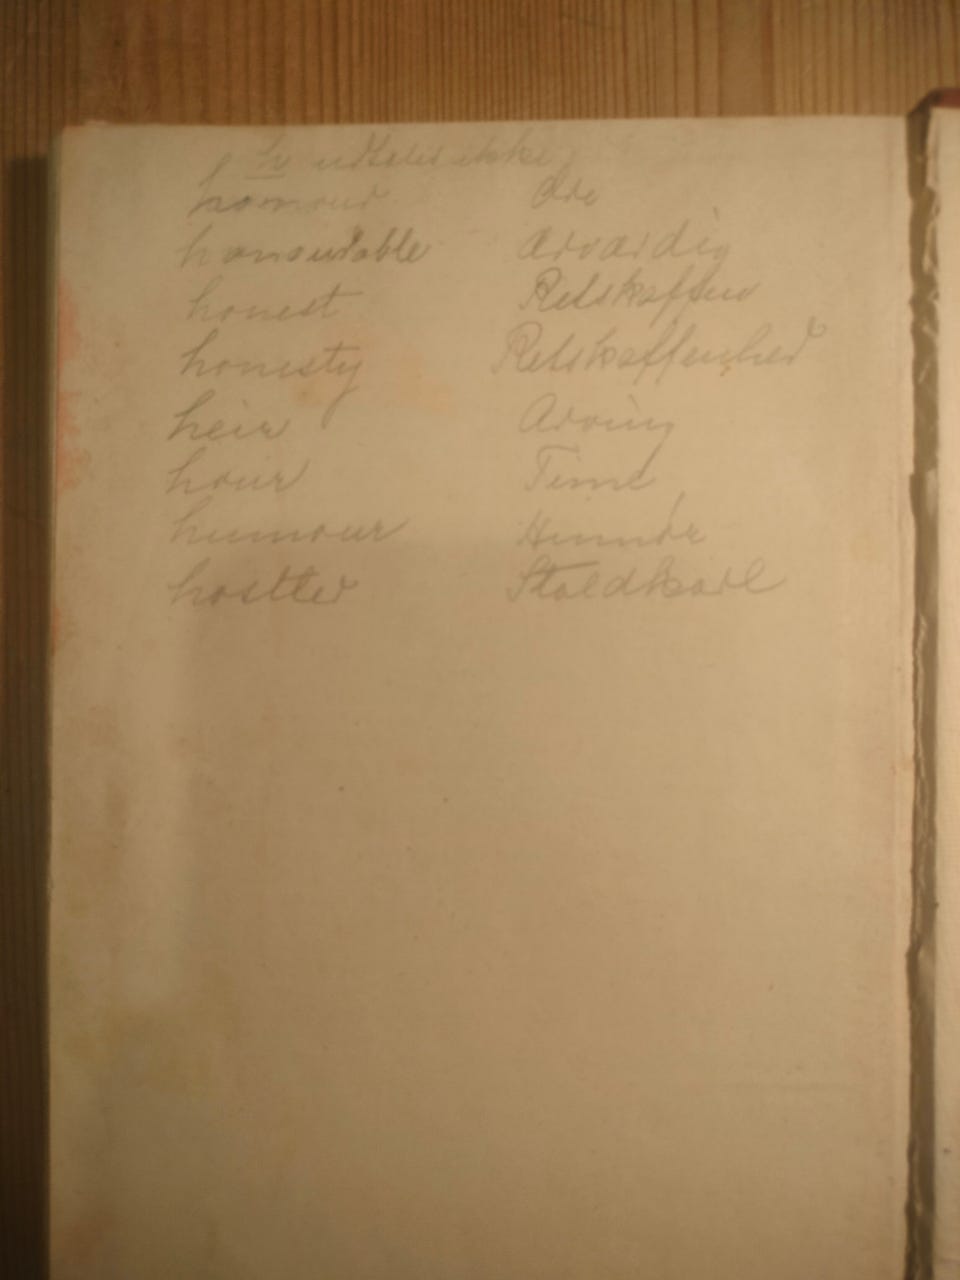 h udtales ikke
honour Ære
honourable ærværdig
honest Retskaffen
honesty Retskaffenhed
heir Arving
hour Time
humour Humør
hostler Staldkarl